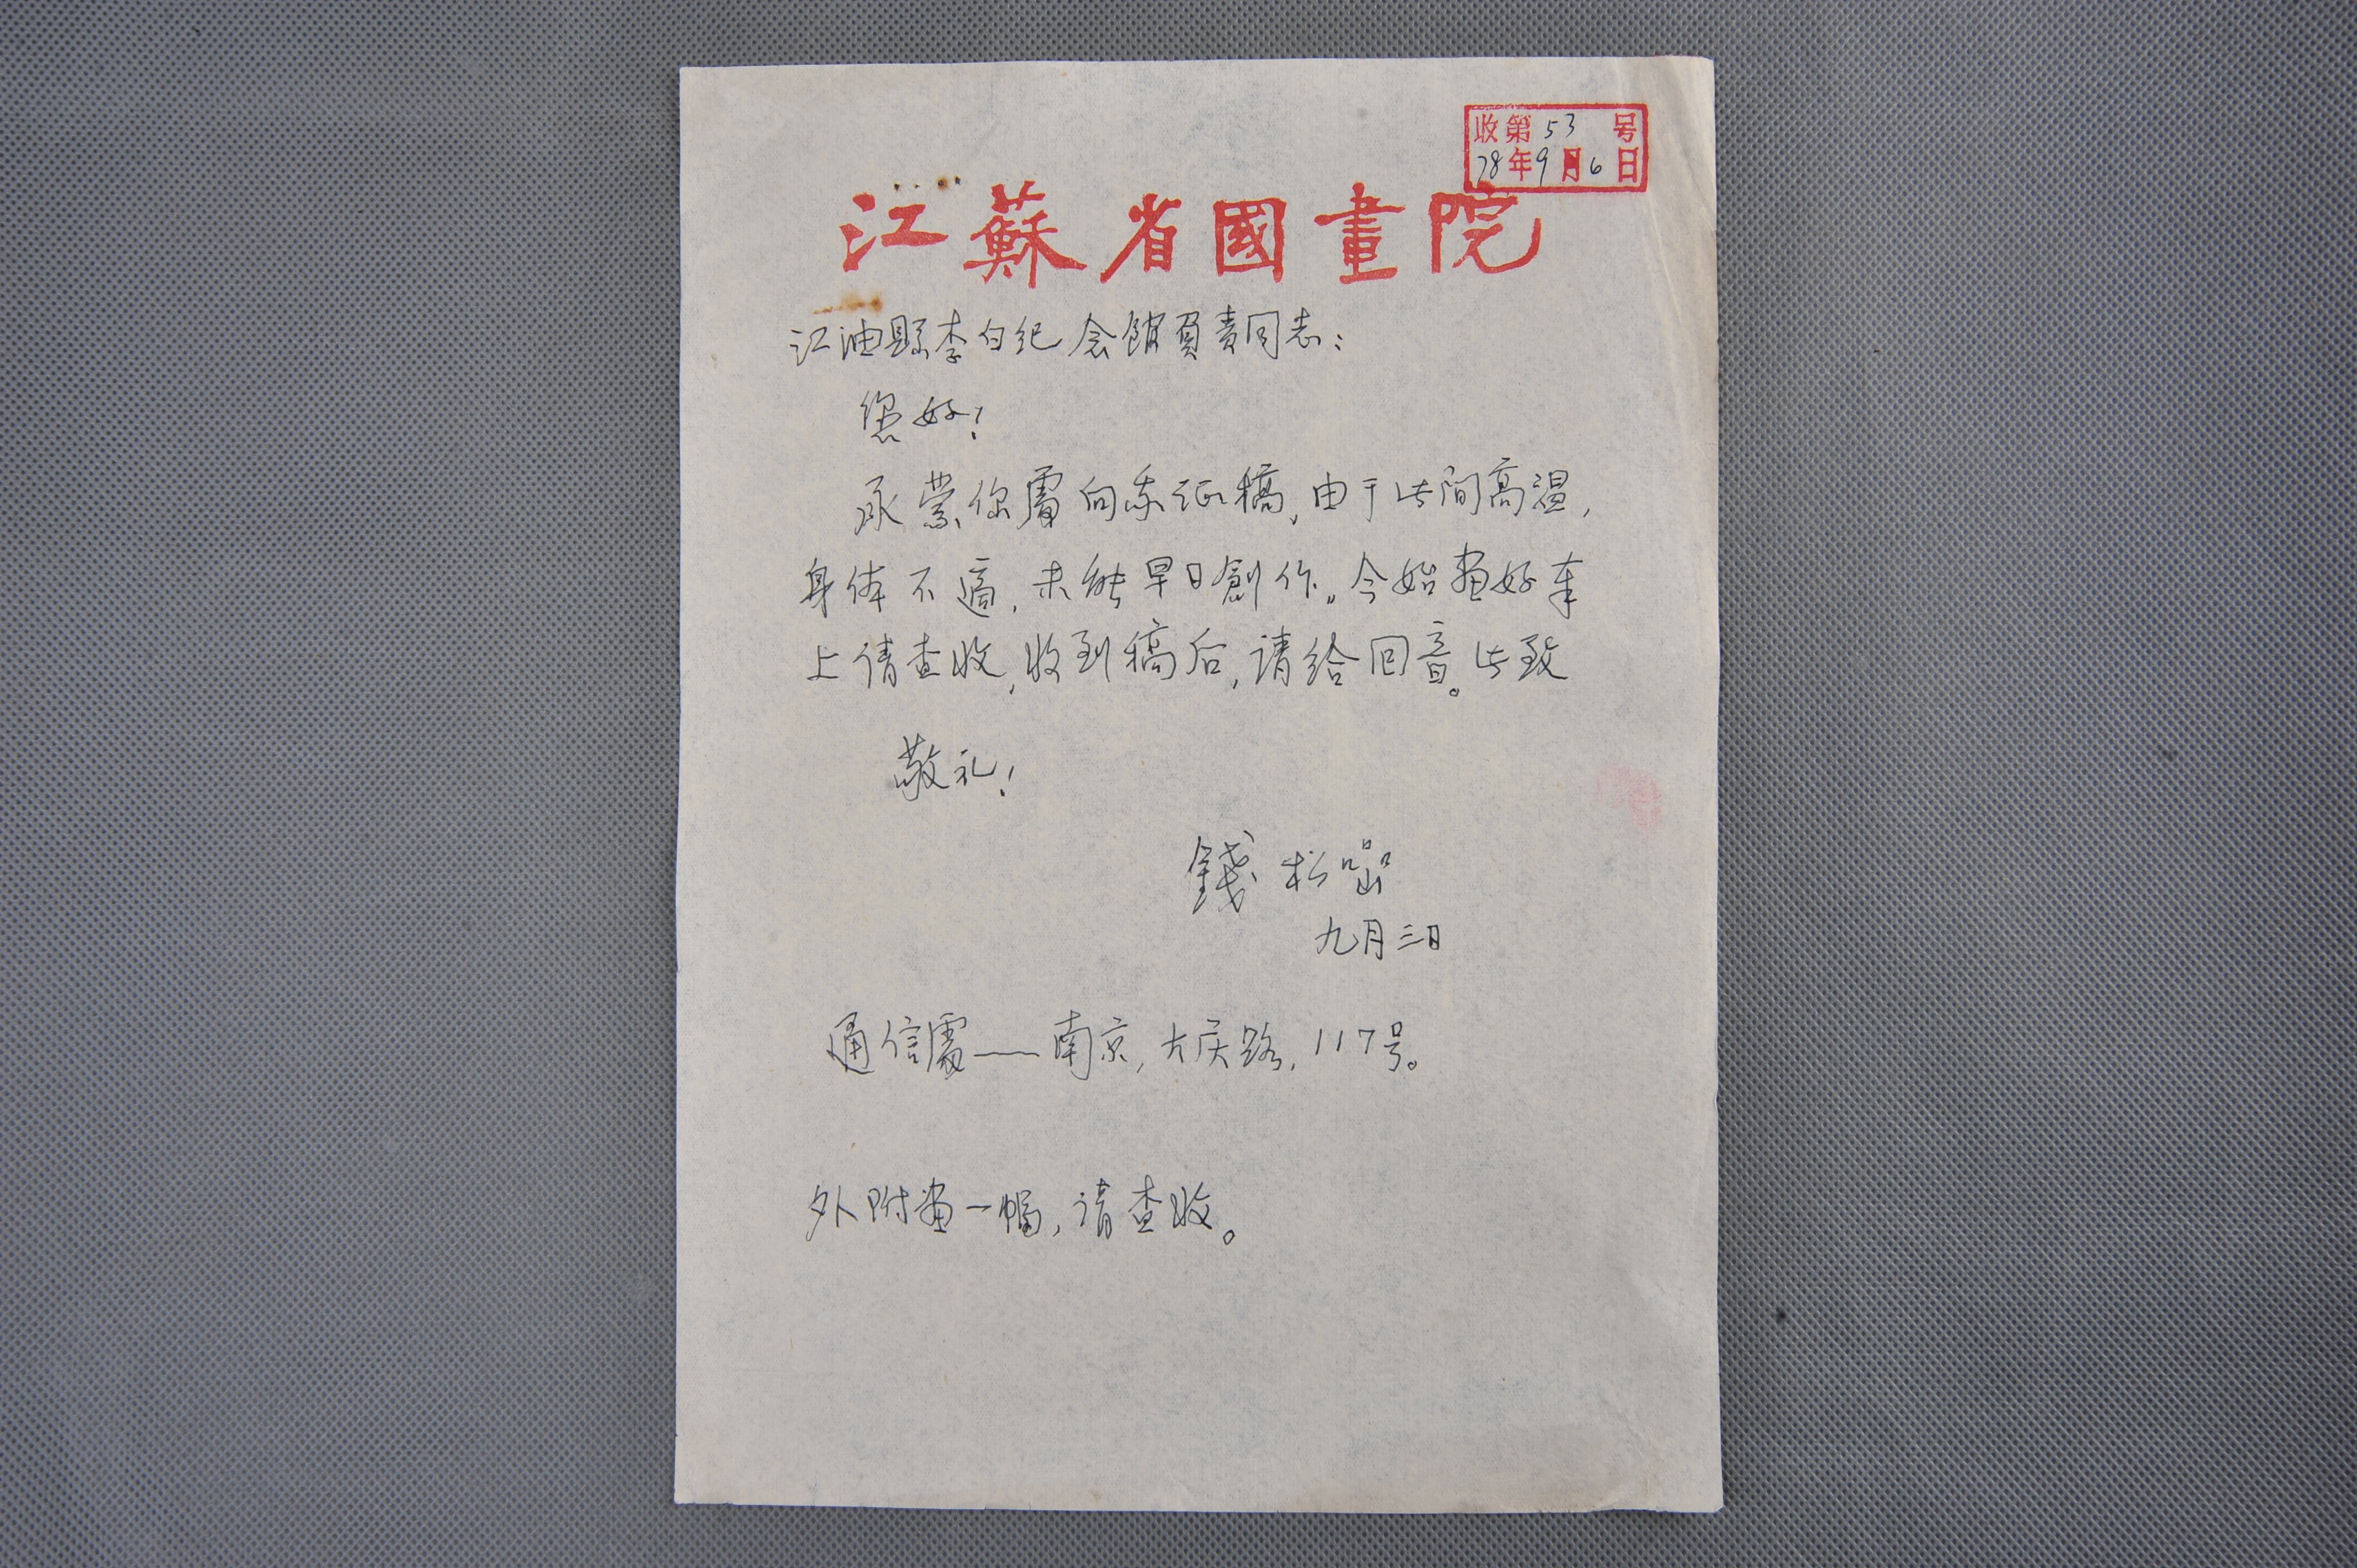 收第53号
78年9月6日
江蘇省國畫院
江油縣李白纪念館負責同志：
您好！
承蒙你處向余征稿，由于此间高温，
身体不適，未能早日創作。今始画好奉
上请查收，收到稿后，请给回音。此致
敬礼！
錢松喦
九月三日
通信處——南京，大庆路，117号。
外附画一幅，请查收。